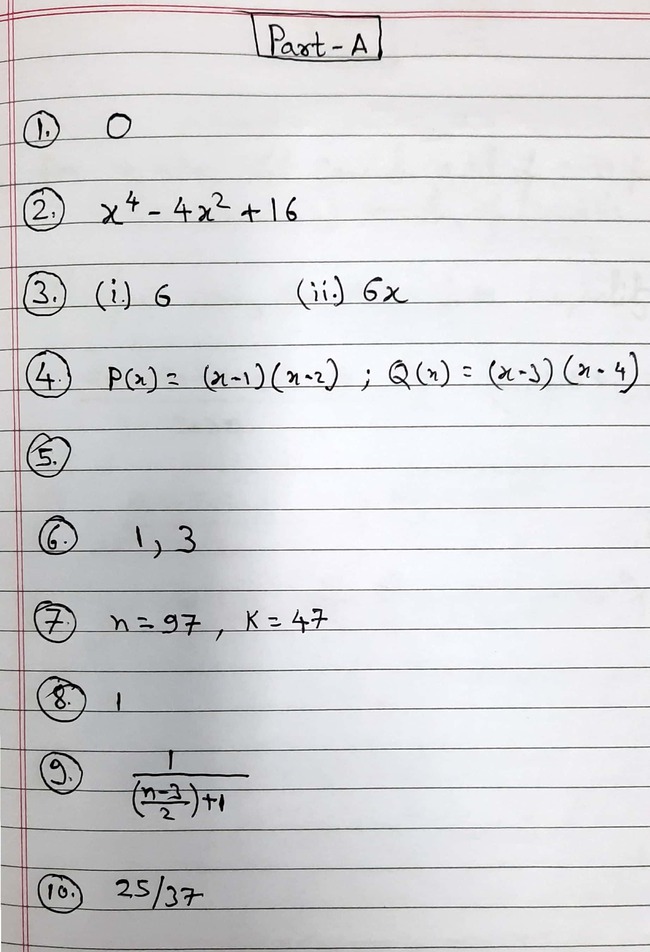 Part-A
1. 0
2. x⁴ - 4x² + 16
3. (i.) 6 (ii.) 6x
4. P(x) = (x-1)(x-2) ; Q(x) = (x-3)(x-4)
5.
6. 1, 3
7. n = 97, K = 47
8. 1
9. 1/(((n-3)/2)+1)
10. 25/37